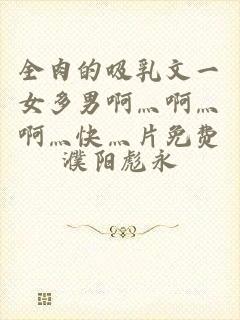 全肉的吸乳文一
女多男啊灬啊灬
啊灬快灬片免费
濮阳彪永